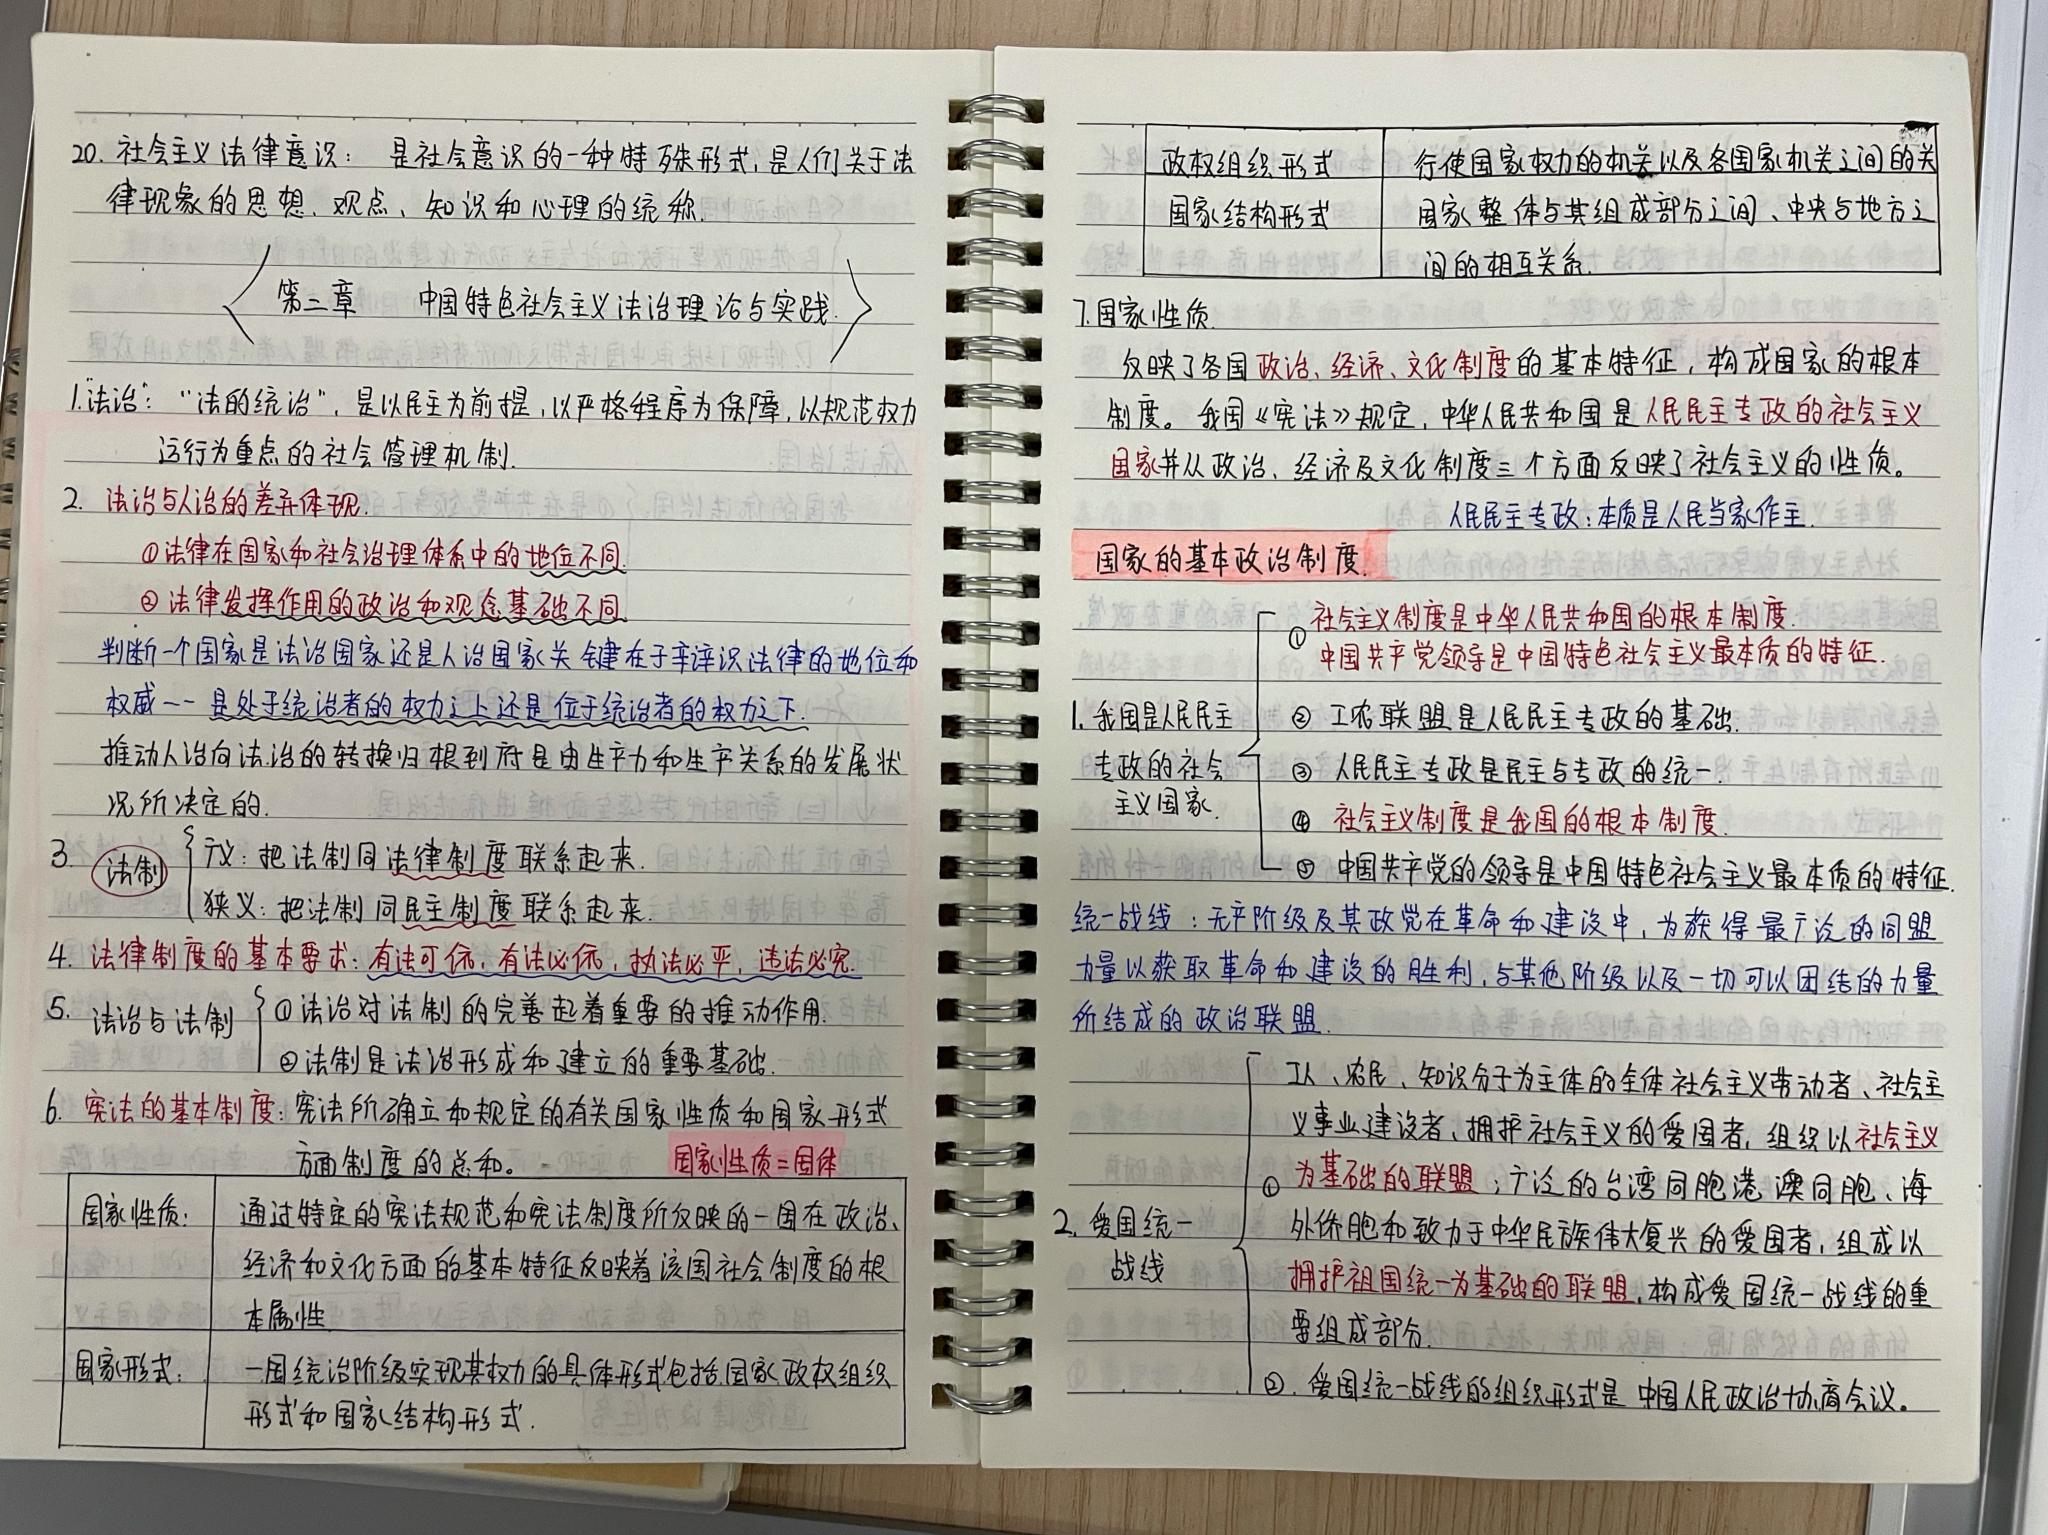 20. 社会主义法律意识： 是社会意识的一种特殊形式，是人们关于法
律现象的思想、观点、知识和心理的统称.
第三章 中国特色社会主义法治理论与实践.
1."法治"："法的统治"，是以民主为前提，以严格程序为保障，以规范权力
运行为重点的社会管理机制.
2. 法治与人治的差异体现.
①法律在国家和社会治理体系中的地位不同.
②法律发挥作用的政治和观念基础不同.
判断一个国家是法治国家还是人治国家关键在于辛谇识法律的地位和
权威一一是处于统治者的权力之上还是位于统治者的权力之下.
推动人治向法治的转换归根到府是由生产力和生产关系的发展状
况所决定的.
3. 法制
广义：把法制同法律制度联系起来.
狭义：把法制同民主制度联系起来.
4. 法律制度的基本要求：有法可依，有法必依，执法必严，违法必究.
5. 法治与法制
①法治对法制的完善起着重要的推动作用.
②法制是法治形成和建立的重要基础.
6. 宪法的基本制度：宪法所确立和规定的有关国家性质和国家形式
方面制度的总和。 国家性质=国体
国家性质： 通过特定的宪法规范和宪法制度所反映的一国在政治、
经济和文化方面的基本特征反映着该国社会制度的根
本属性
国家形式： 一国统治阶级实现其权力的具体形式包括国家政权组织
形式和国家结构形式.
政权组织形式 行使国家权力的机关以及各国家机关之间的关
国家结构形式 国家整体与其组成部分之间、中央与地方之
间的相互关系.
7.国家性质.
反映了各国政治、经济、文化制度的基本特征，构成国家的根本
制度。我国《宪法》规定，中华人民共和国是人民民主专政的社会主义
国家并从政治、经济及文化制度三个方面反映了社会主义的性质。
人民民主专政：本质是人民当家作主.
国家的基本政治制度.
1. 我国是人民民主
专政的社会
主义国家.
① 社会主义制度是中华人民共和国的根本制度.
中国共产党领导是中国特色社会主义最本质的特征.
② 工农联盟是人民民主专政的基础.
③ 人民民主专政是民主与专政的统一.
④ 社会主义制度是我国的根本制度.
⑤ 中国共产党的领导是中国特色社会主义最本质的特征.
统一战线：无产阶级及其政党在革命和建设中，为获得最广泛的同盟
力量以获取革命和建设的胜利，与其他阶级以及一切可以团结的力量
所结成的政治联盟.
2. 爱国统一
战线
① 工人、农民、知识分子为主体的全体社会主义劳动者、社会主
义事业建设者、拥护社会主义的爱国者，组织以社会主义
为基础的联盟；广泛的台湾同胞港澳同胞、海
外侨胞和致力于中华民族伟大复兴的爱国者，组成以
拥护祖国统一为基础的联盟，构成爱国统一战线的重
要组成部分.
②. 爱国统一战线的组织形式是中国人民政治协商会议。